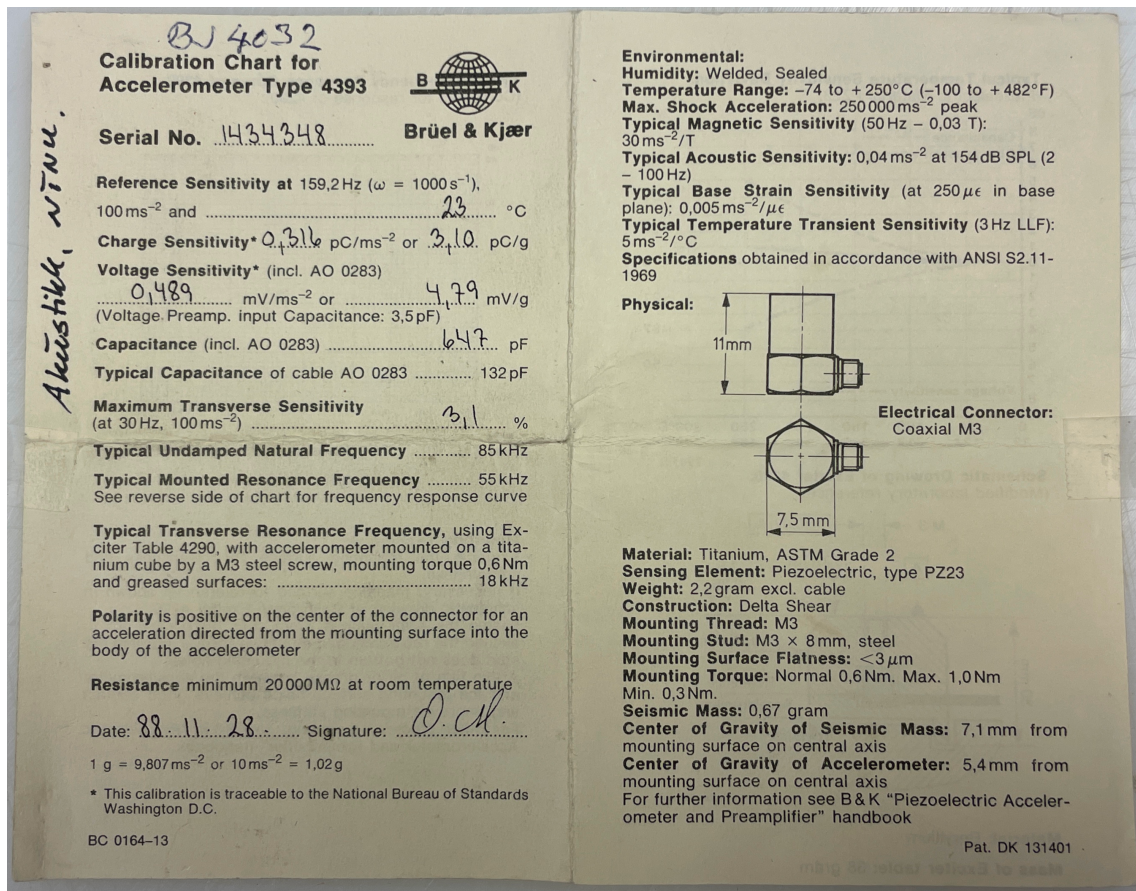 BJ 4032
Calibration Chart for
Accelerometer Type 4393
B K
Brüel & Kjær
Serial No. 1434348
Akustikk, NTNU.
Reference Sensitivity at 159,2 Hz (ω = 1000 s⁻¹),
100 ms⁻² and 23 °C
Charge Sensitivity* 0,316 pC/ms⁻² or 3,10 pC/g
Voltage Sensitivity* (incl. AO 0283)
0,489 mV/ms⁻² or 4,79 mV/g
(Voltage Preamp. input Capacitance: 3,5 pF)
Capacitance (incl. AO 0283) 647 pF
Typical Capacitance of cable AO 0283 132 pF
Maximum Transverse Sensitivity
(at 30 Hz, 100 ms⁻²) 3,1 %
Typical Undamped Natural Frequency 85 kHz
Typical Mounted Resonance Frequency 55 kHz
See reverse side of chart for frequency response curve
Typical Transverse Resonance Frequency, using Ex-
citer Table 4290, with accelerometer mounted on a tita-
nium cube by a M3 steel screw, mounting torque 0,6 Nm
and greased surfaces: 18 kHz
Polarity is positive on the center of the connector for an
acceleration directed from the mounting surface into the
body of the accelerometer
Resistance minimum 20 000 MΩ at room temperature
Date: 88. 11. 28. Signature:
1 g = 9,807 ms⁻² or 10 ms⁻² = 1,02 g
* This calibration is traceable to the National Bureau of Standards
Washington D.C.
BC 0164–13
Environmental:
Humidity: Welded, Sealed
Temperature Range: –74 to + 250°C (–100 to + 482°F)
Max. Shock Acceleration: 250 000 ms⁻² peak
Typical Magnetic Sensitivity (50 Hz – 0,03 T):
30 ms⁻²/T
Typical Acoustic Sensitivity: 0,04 ms⁻² at 154 dB SPL (2
– 100 Hz)
Typical Base Strain Sensitivity (at 250 µε in base
plane): 0,005 ms⁻²/µε
Typical Temperature Transient Sensitivity (3 Hz LLF):
5 ms⁻²/°C
Specifications obtained in accordance with ANSI S2.11-
1969
Physical:
11 mm
Electrical Connector:
Coaxial M3
7,5 mm
Material: Titanium, ASTM Grade 2
Sensing Element: Piezoelectric, type PZ23
Weight: 2,2 gram excl. cable
Construction: Delta Shear
Mounting Thread: M3
Mounting Stud: M3 × 8 mm, steel
Mounting Surface Flatness: <3 µm
Mounting Torque: Normal 0,6 Nm. Max. 1,0 Nm
Min. 0,3 Nm.
Seismic Mass: 0,67 gram
Center of Gravity of Seismic Mass: 7,1 mm from
mounting surface on central axis
Center of Gravity of Accelerometer: 5,4 mm from
mounting surface on central axis
For further information see B & K “Piezoelectric Acceler-
ometer and Preamplifier” handbook
Pat. DK 131401